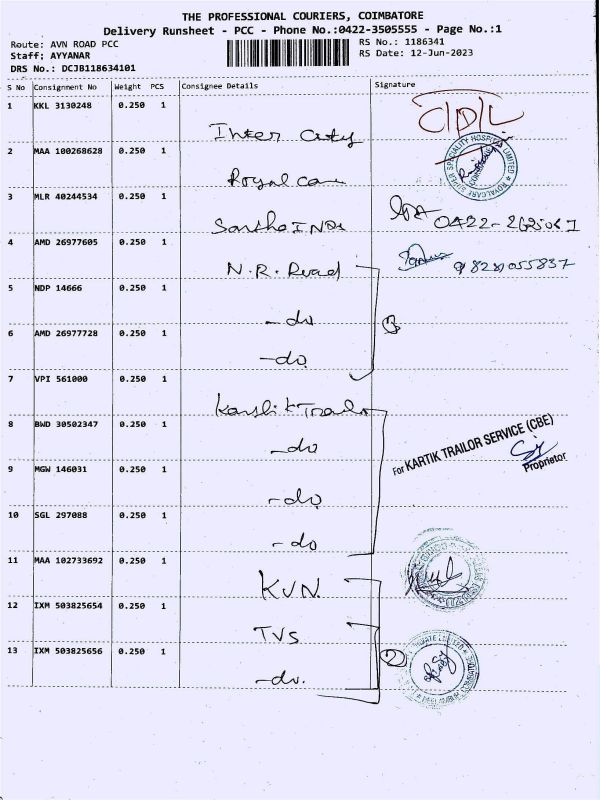 THE PROFESSIONAL COURIERS, COIMBATORE
Delivery Runsheet - PCC - Phone No.:0422-3505555 - Page No.:1
Route: AVN ROAD PCC
RS No.: 1186341
Staff: AYYANAR
RS Date: 12-Jun-2023
DRS No.: DCJB118634101
S No Consignment No Weight PCS Consignee Details Signature
1 KKL 3130248 0.250 1 Inter City
2 MAA 100268628 0.250 1 Royal Care
ROYALCARE SUPER SPECIALITY HOSPITAL LIMITED
3 MLR 40244534 0.250 1
4 AMD 26977605 0.250 1 N.R. Road
5 NDP 14666 0.250 1 -do
6 AMD 26977728 0.250 1 -do
7 VPI 561000 0.250 1 Karthik Trailor
8 BWD 30502347 0.250 1 -do
For KARTIK TRAILOR SERVICE (CBE)
Proprietor
9 MGW 146031 0.250 1 -do
10 SGL 297088 0.250 1 -do
11 MAA 102733692 0.250 1 KVN
12 IXM 503825654 0.250 1 TVS
13 IXM 503825656 0.250 1 -do. 2